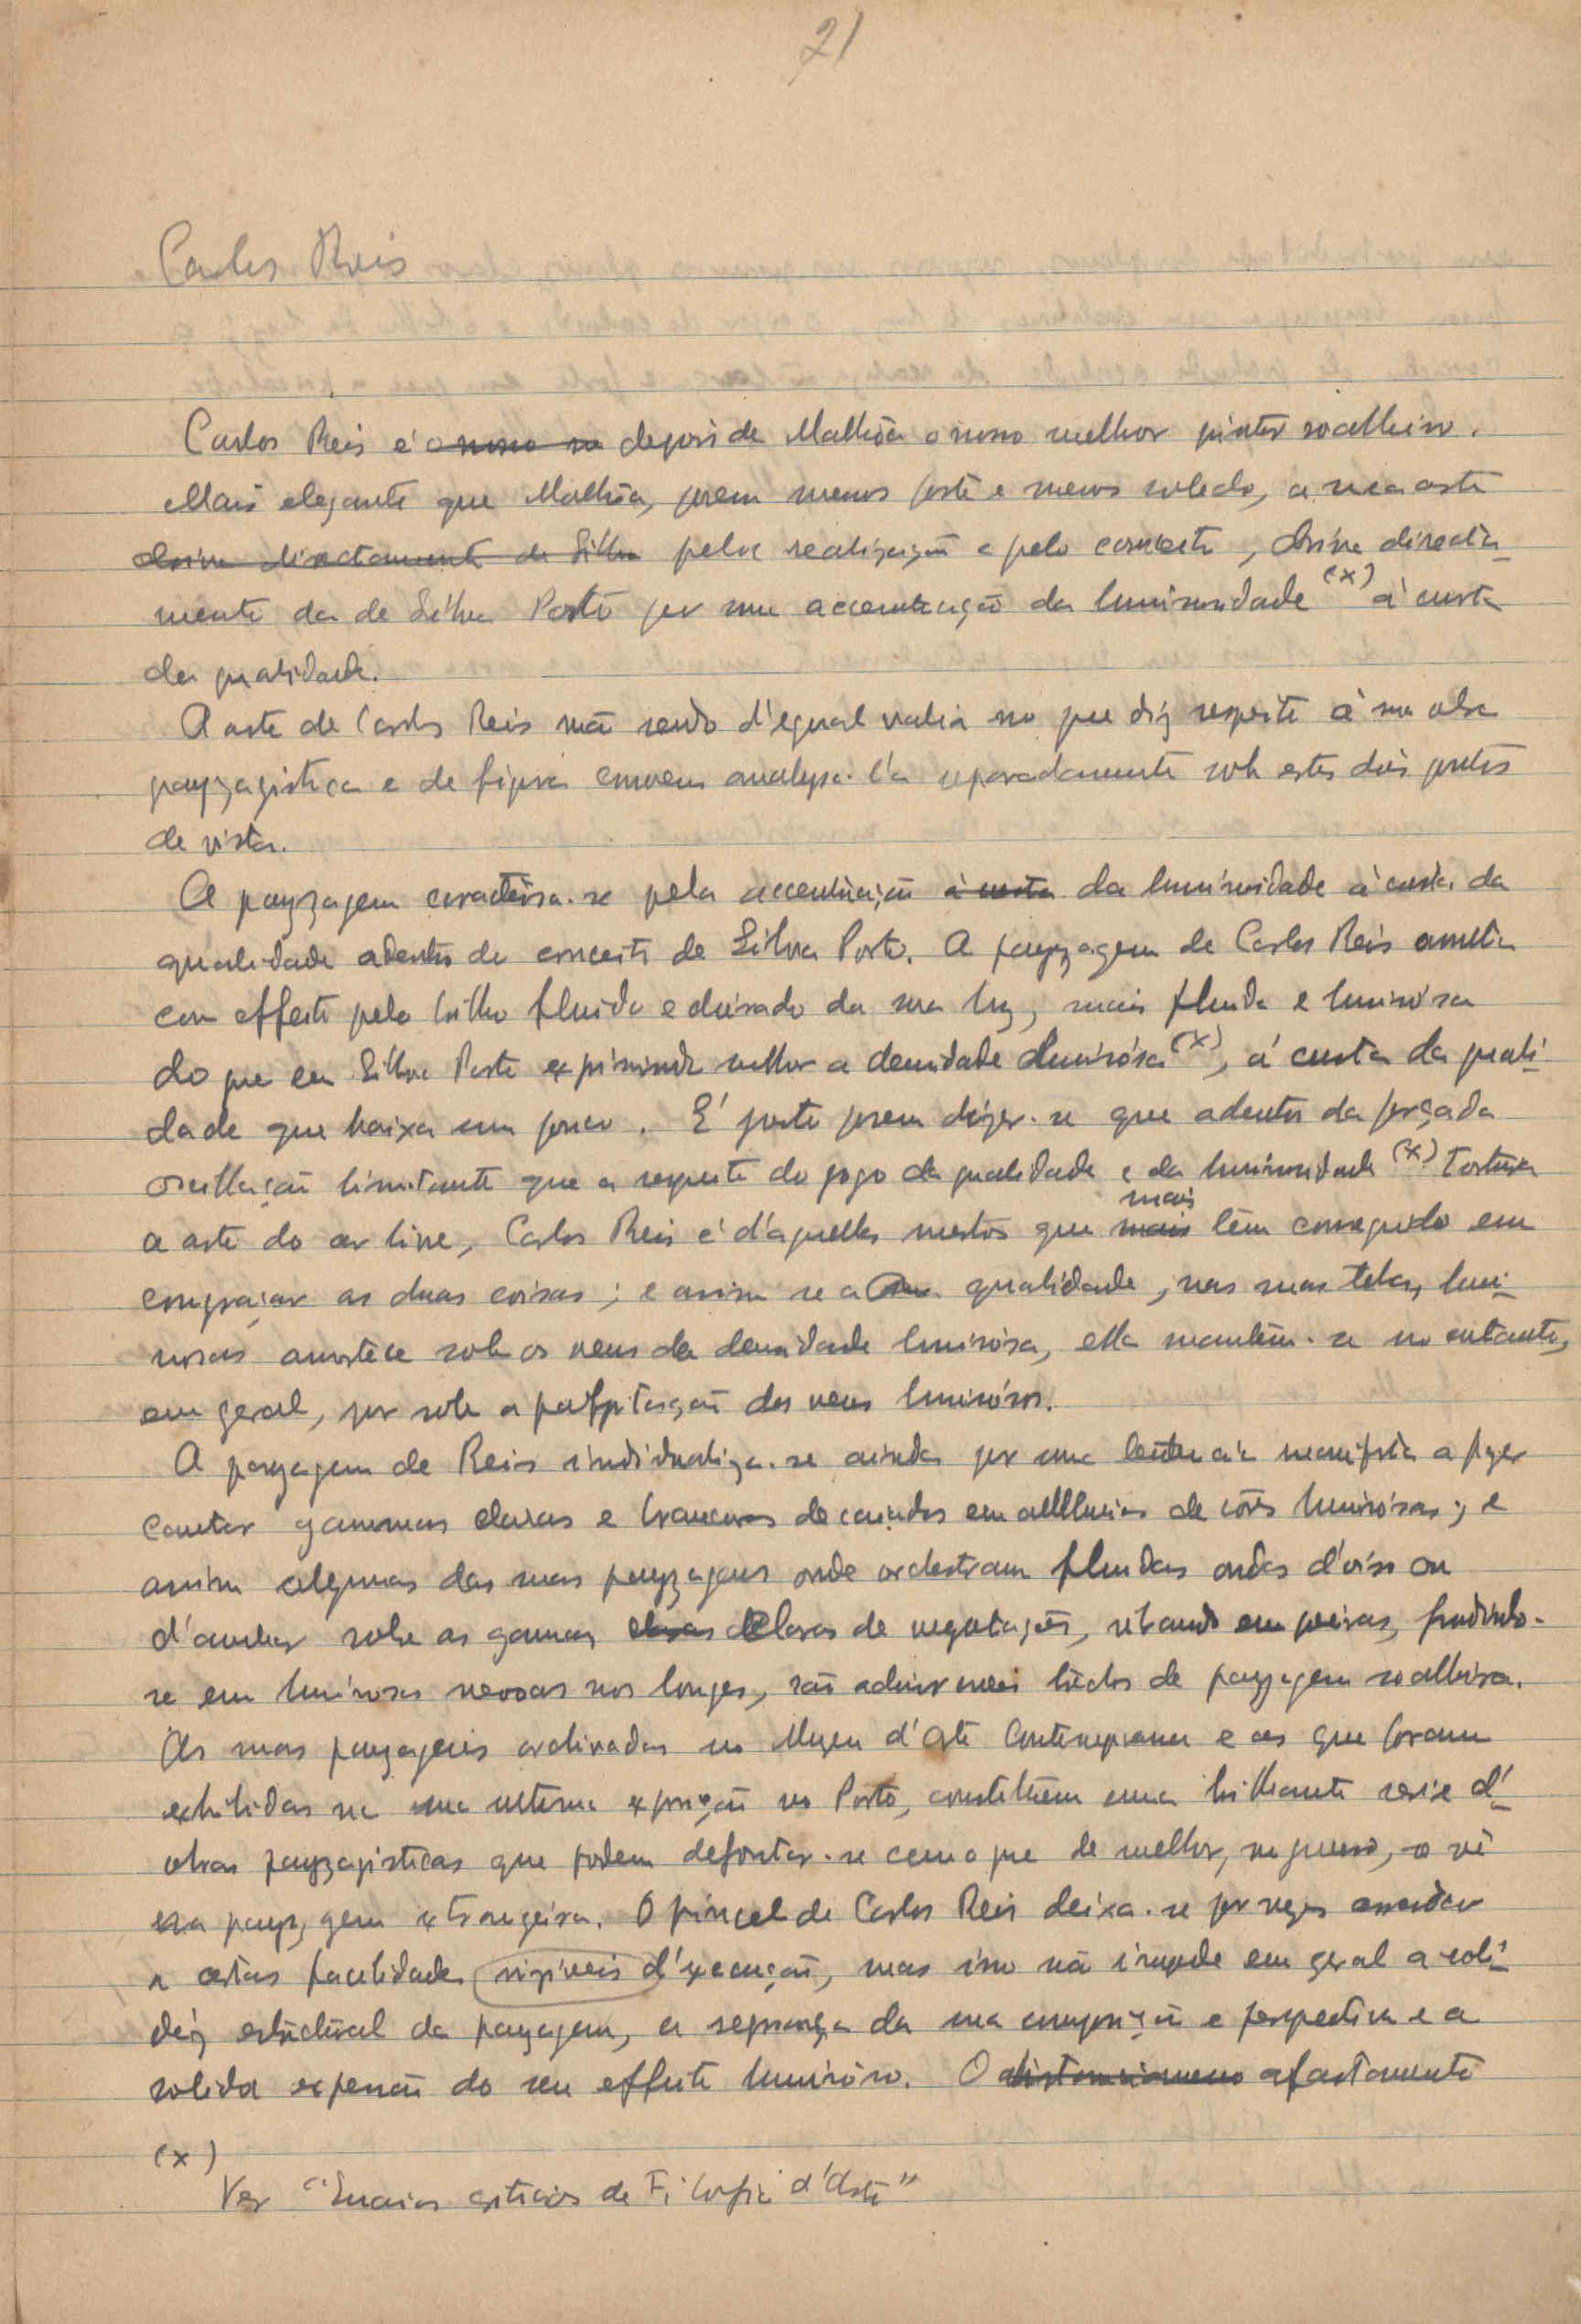 21
Carlos Reis
Carlos Reis é o nosso so depois de Malhôa o nosso melhor pintor soalheiro.
Mais elegante que Malhôa, porem menos forte e menos solido, a sua arte
deriva directamente de Silva pela realização e pelo conceito, deriva directa-
mente da de Silva Porto por uma accentuação da luminosidade (x) à custa
da qualidade.
A arte de Carlos Reis não sendo d'egual valia no que diz respeito à sua obra
payzagistica e de figura convem analysa-l'a separadamente sob estes dois pontos
de vista.
A payzagem caracterisa-se pela accentuação à custa da luminosidade à custa da
qualidade adentro do conceito de Silva Porto. A payzagem de Carlos Reis
com effeito pelo brilho fluido e doirado da sua luz, mais fluida e luminósa
do que em Silva Porto exprimindo melhor a densidade luminósa (x), á custa da quali-
dade que baixa um pouco. É justo porem dizer-se que adentro da forçada
oscillação limitante que a respeito do jogo da qualidade e da luminosidade (x) tortura
a arte do ar livre, Carlos Reis é d'aquelles mestres que mais mais têm conseguido em
congraçar as duas coisas; e assim se a sua qualidade, nas suas telas, lumi-
nosas amortece sob os veus da densidade luminósa, ella mantêm-se no entanto,
em geral, por sob a palpitação dos veus luminósos.
A payzagem de Reis individualiza-se ainda por uma tendencia manifesta a fazer
cantar gammas claras e brancuras de caiados em alleluias de côres luminósas; e
assim algumas das suas payzagens onde orchestram fluidas ondas d'oiro ou
d'ambar sobre as gamas claras claras de vegetações, vibrando em poeiras, fundindo-
se em luminosas nevoas nos longes, são admiraveis trechos de payzagem soalheira.
As suas payzagens archivadas no Muzeu d'Arte Contemporanea e as que foram
exhibidas na sua ultima exposição no Porto, constituem uma brilhante serie d'
obras payzagisticas que podem defrontar-se com o que de melhor, no genero, se vê
na payzagem extrangeira. O pincel de Carlos Reis deixa-se por vezes
a certas facilidades visiveis d'execução, mas isso não impede em geral a soli-
déz estructural da payzagem, a segurança da sua composição e perspectiva e a
solida expressão do seu effeito luminóso. O distanciamento afastamento
(x)
Ver "Ensaios criticos de Filosofia d'Arte"